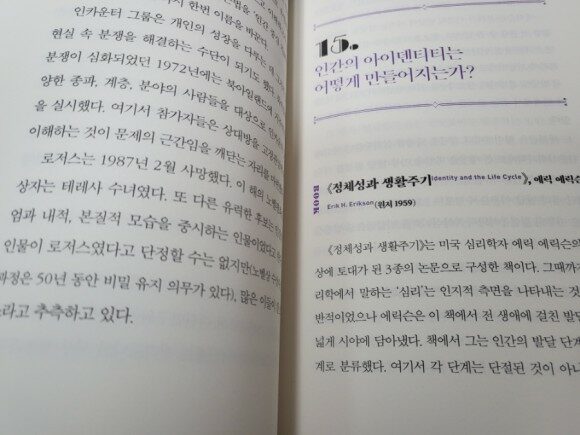 서 다시 한번 이름을 바꿨다.
인카운터 그룹은 개인의 성장을 다루는 데
현실 속 분쟁을 해결하는 수단이 되기도 했다.
분쟁이 심화되었던 1972년에는 북아일랜드에
양한 종파, 계층, 분야의 사람들을 대상으로 인카운
을 실시했다. 여기서 참가자들은 상대방을
이해하는 것이 문제의 근간임을 깨닫는 자리를
로저스는 1987년 2월 사망했다. 이 해의 노벨
상자는 테레사 수녀였다. 또 다른 유력한 후보는
엄과 내적, 본질적 모습을 중시하는 인물이었다고
인물이 로저스였다고 단정할 수는 없지만(노벨상
과정은 50년 동안 비밀 유지 의무가 있다), 많은 이들이
라고 추측하고 있다.
15.
인간의 아이덴티티는
어떻게 만들어지는가?
BOOK
《정체성과 생활주기Identity and the Life Cycle》, 에릭 에릭슨
Erik H. Erikson(원저 1959)
《정체성과 생활주기》는 미국 심리학자 에릭 에릭슨의
상에 토대가 된 3종의 논문으로 구성한 책이다. 그때까지
리학에서 말하는 '심리'는 인지적 측면을 나타내는 것
반적이었으나 에릭슨은 이 책에서 전 생애에 걸친 발달
넓게 시야에 담아냈다. 책에서 그는 인간의 발달 단계
계로 분류했다. 여기서 각 단계는 단절된 것이 아니